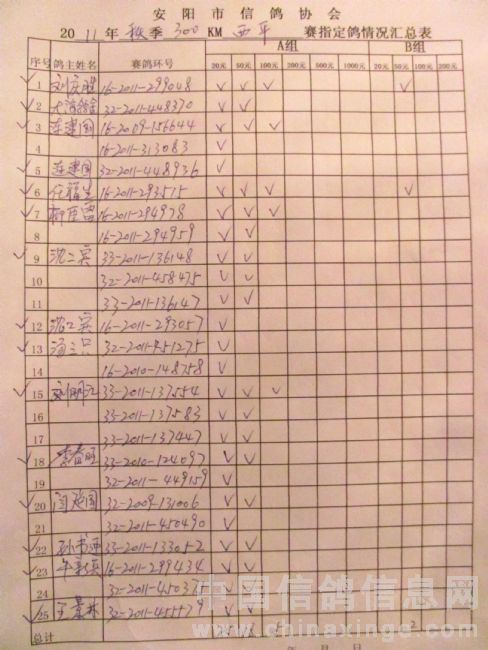 安阳市信鸽协会
2011年秋季300KM西平 赛指定鸽情况汇总表
序号 鸽主姓名 赛鸽环号 A组 B组
20元 50元 100元 200元 300元 20元 50元 100元 200元
√ 1 16-2011-299048 √ √ √ √
√ 2 32-2011-448370 √ √
√ 3 连建国 16-2009-156644 √ √ √
4 16-2011-313083 √
√ 5 连建国 32-2011-448936 √
√ 6 任福生 16-2011-293515 √ √ √ √
√ 7 16-2011-294978 √ √ √
8 16-2011-294959 √ √
√ 9 沈二宾 33-2011-136148 √ √
10 32-2011-458475 √ √
11 33-2011-136147 √ √
√ 12 沈二宾 16-2011-293057 √
√ 13 32-2011-451275 √ √
14 16-2010-148758 √
√ 15 33-2011-137554 √ √ √
16 33-2011-137583 √ √
17 33-2011-137447 √ √
√ 18 33-2010-124097 √ √
19 32-2011-449159 √ √
√ 20 32-2009-131006 √ √
21 32-2011-450490 √
√ 22 33-2011-133052 √ √
√ 23 16-2011-292434 √ √
24 32-2011-45037 √
√ 25 王景林 32-2011-455579 √ √
总计 2
年 月 日
中国信鸽信息网
www.chinaxinge.com